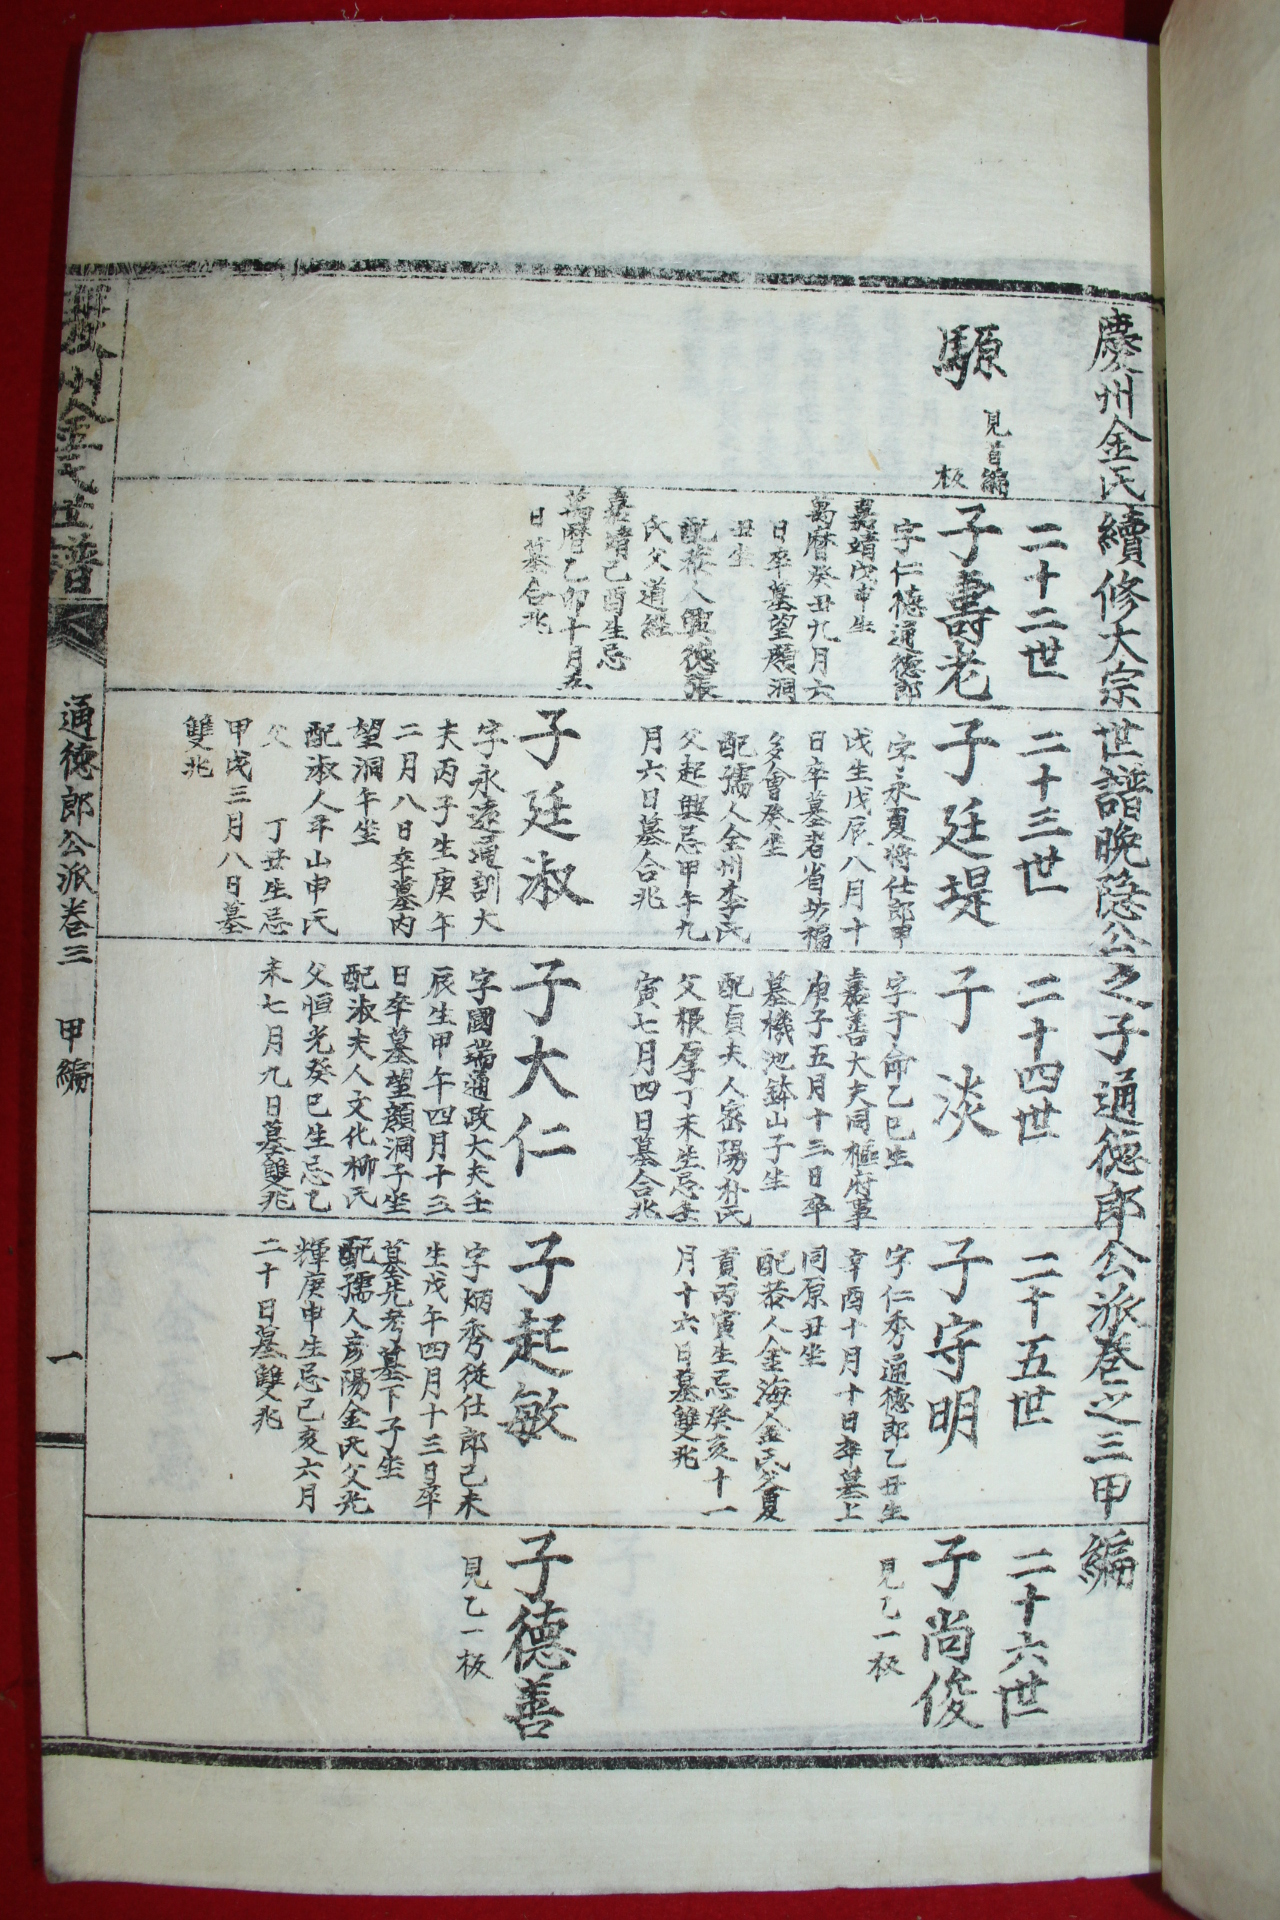 慶州金氏續修大宗世譜晩隐公之子通徳郎公派卷之三甲編
騵
見首編
板
二十二世
子壽老
字仁德通德郎
嘉靖戊申生
萬曆癸丑九月六
日卒墓望願洞
丑坐
配恭人興德張
氏父道經
嘉靖己酉生忌
萬曆乙卯十月五
日墓合兆
二十三世
子廷堤
字永夏將仕郎甲
戊生戊辰八月十
日卒墓者省坊福
多會癸坐
配孺人全州李氏
父起興忌甲午九
月六日墓合兆
子廷淑
字永遠通訓大
夫丙子生庚午
二月八日卒墓内
望洞午坐
配淑人平山申氏
父 丁丑生忌
甲戌三月八日墓
雙兆
二十四世
子淡
字于命乙巳生
嘉善大夫同樞府事
庚子五月十三日卒
墓機池鉢山子生
配貞夫人密陽朴氏
父根厚丁未生忌壬
寅七月四日墓合兆
子大仁
字國端通政大夫壬
辰生甲午四月十三
日卒墓望顔洞子坐
配淑夫人文化柳氏
父恒光癸巳生忌乙
未七月九日墓雙兆
二十五世
子守明
字仁秀通德郎乙丑生
辛酉十月十日卒墓上
同原丑坐
配恭人金海金氏父夏
貢丙寅生忌癸亥十一
月十六日墓雙兆
子起敏
字炳秀從仕郎己未
生戊午四月十三日卒
墓先考墓下子坐
配孺人彦陽金氏父光
輝庚申生忌己亥六月
二十日墓雙兆
二十六世
子尚俊
見乙一板
子德善
見乙一板
慶州金氏世譜
通徳郎公派卷三 甲編
一